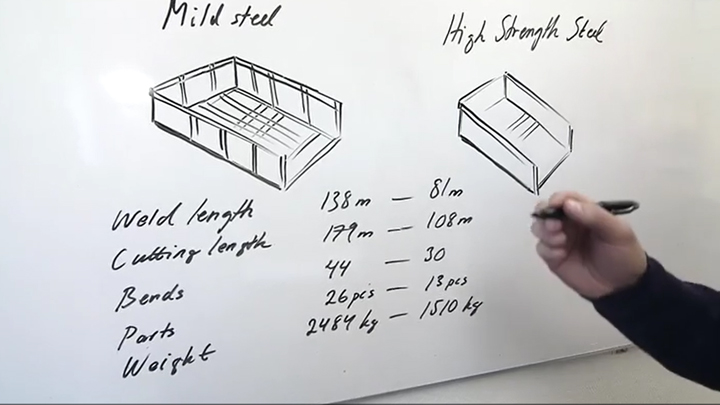 Mild steel
High Strength Steel
Weld length 138m — 81m
Cutting length 179m — 108m
Bends 44 — 30
Parts 26pcs — 13pcs
Weight 2484 kg — 1510 kg